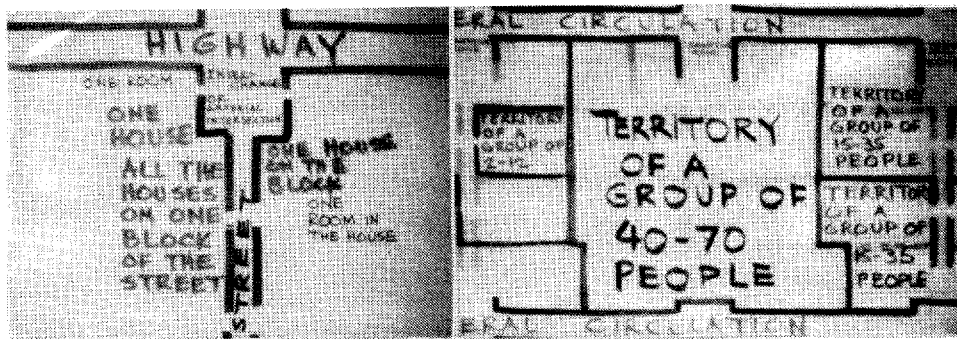 HIGHWAY
ONE ROOM
ONE
HOUSE
ALL THE
HOUSES
ON ONE
BLOCK
OF THE
STREET
OF
INTERSECTION
ONE HOUSE
ON THE
BLOCK
ONE
ROOM IN
THE HOUSE
STREET
ERAL CIRCULATION
TERRITORY
OF A
GROUP OF
2-12
TERRITORY
OF A
GROUP OF
40-70
PEOPLE
TERRITORY
OF A
GROUP OF
15-35
PEOPLE
TERRITOR
OF A
GROUP OF
15-35
PEOPLE
ERAL CIRCULATION